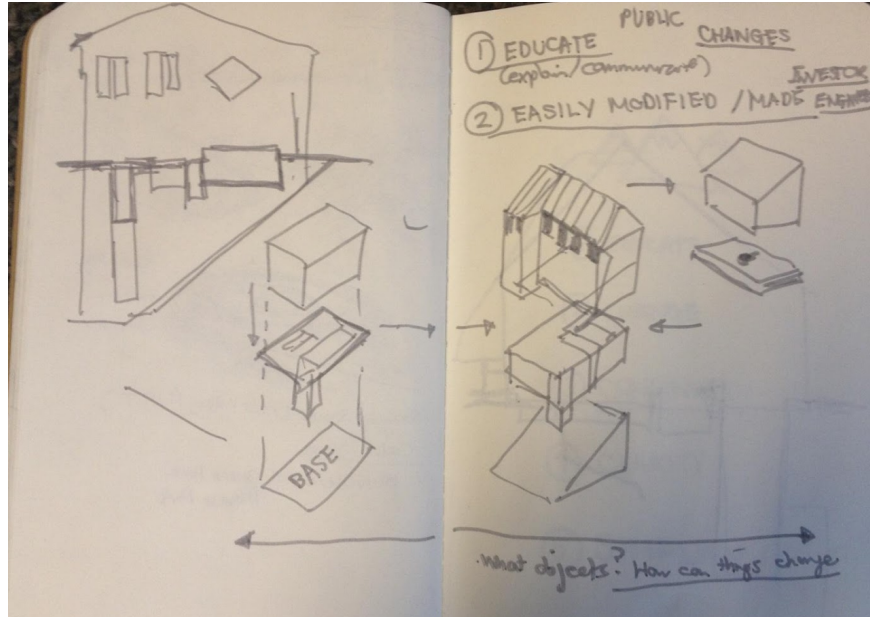 BASE
PUBLIC
① EDUCATE CHANGES
(explain/communicate)
② EASILY MODIFIED / MADE
What objects? How can things change